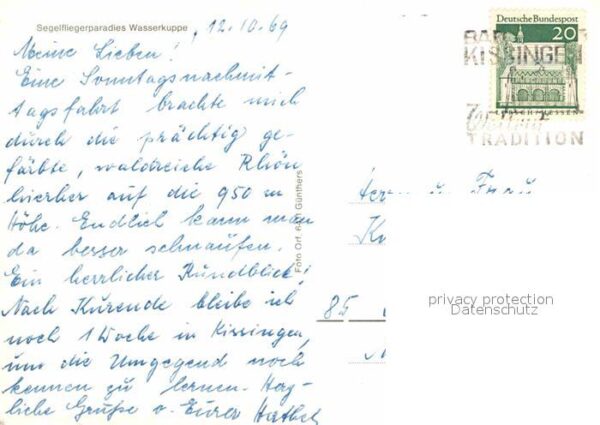 Segelfliegerparadies Wasserkuppe, 12.10.69
Meine Lieben!
Eine Sonntagsnachmit-
tagsfahrt brachte mich
durch die prächtig ge-
färbte, waldreiche Rhön
hierher auf die 950 m
Höhe. Endlich kann man
da besser schnaufen.
Ein herrlicher Rundblick!
Nach Kurende bleibe ich
noch 1 Woche in Kissingen,
um die Umgegend noch
kennen zu lernen. Herz-
liche Grüße v. Eurer
Foto Orf. Günthers
Deutsche Bundespost
20
BAD
KISSINGEN
TRADITION
Herrn u. Frau
85
privacy protection
Datenschutz